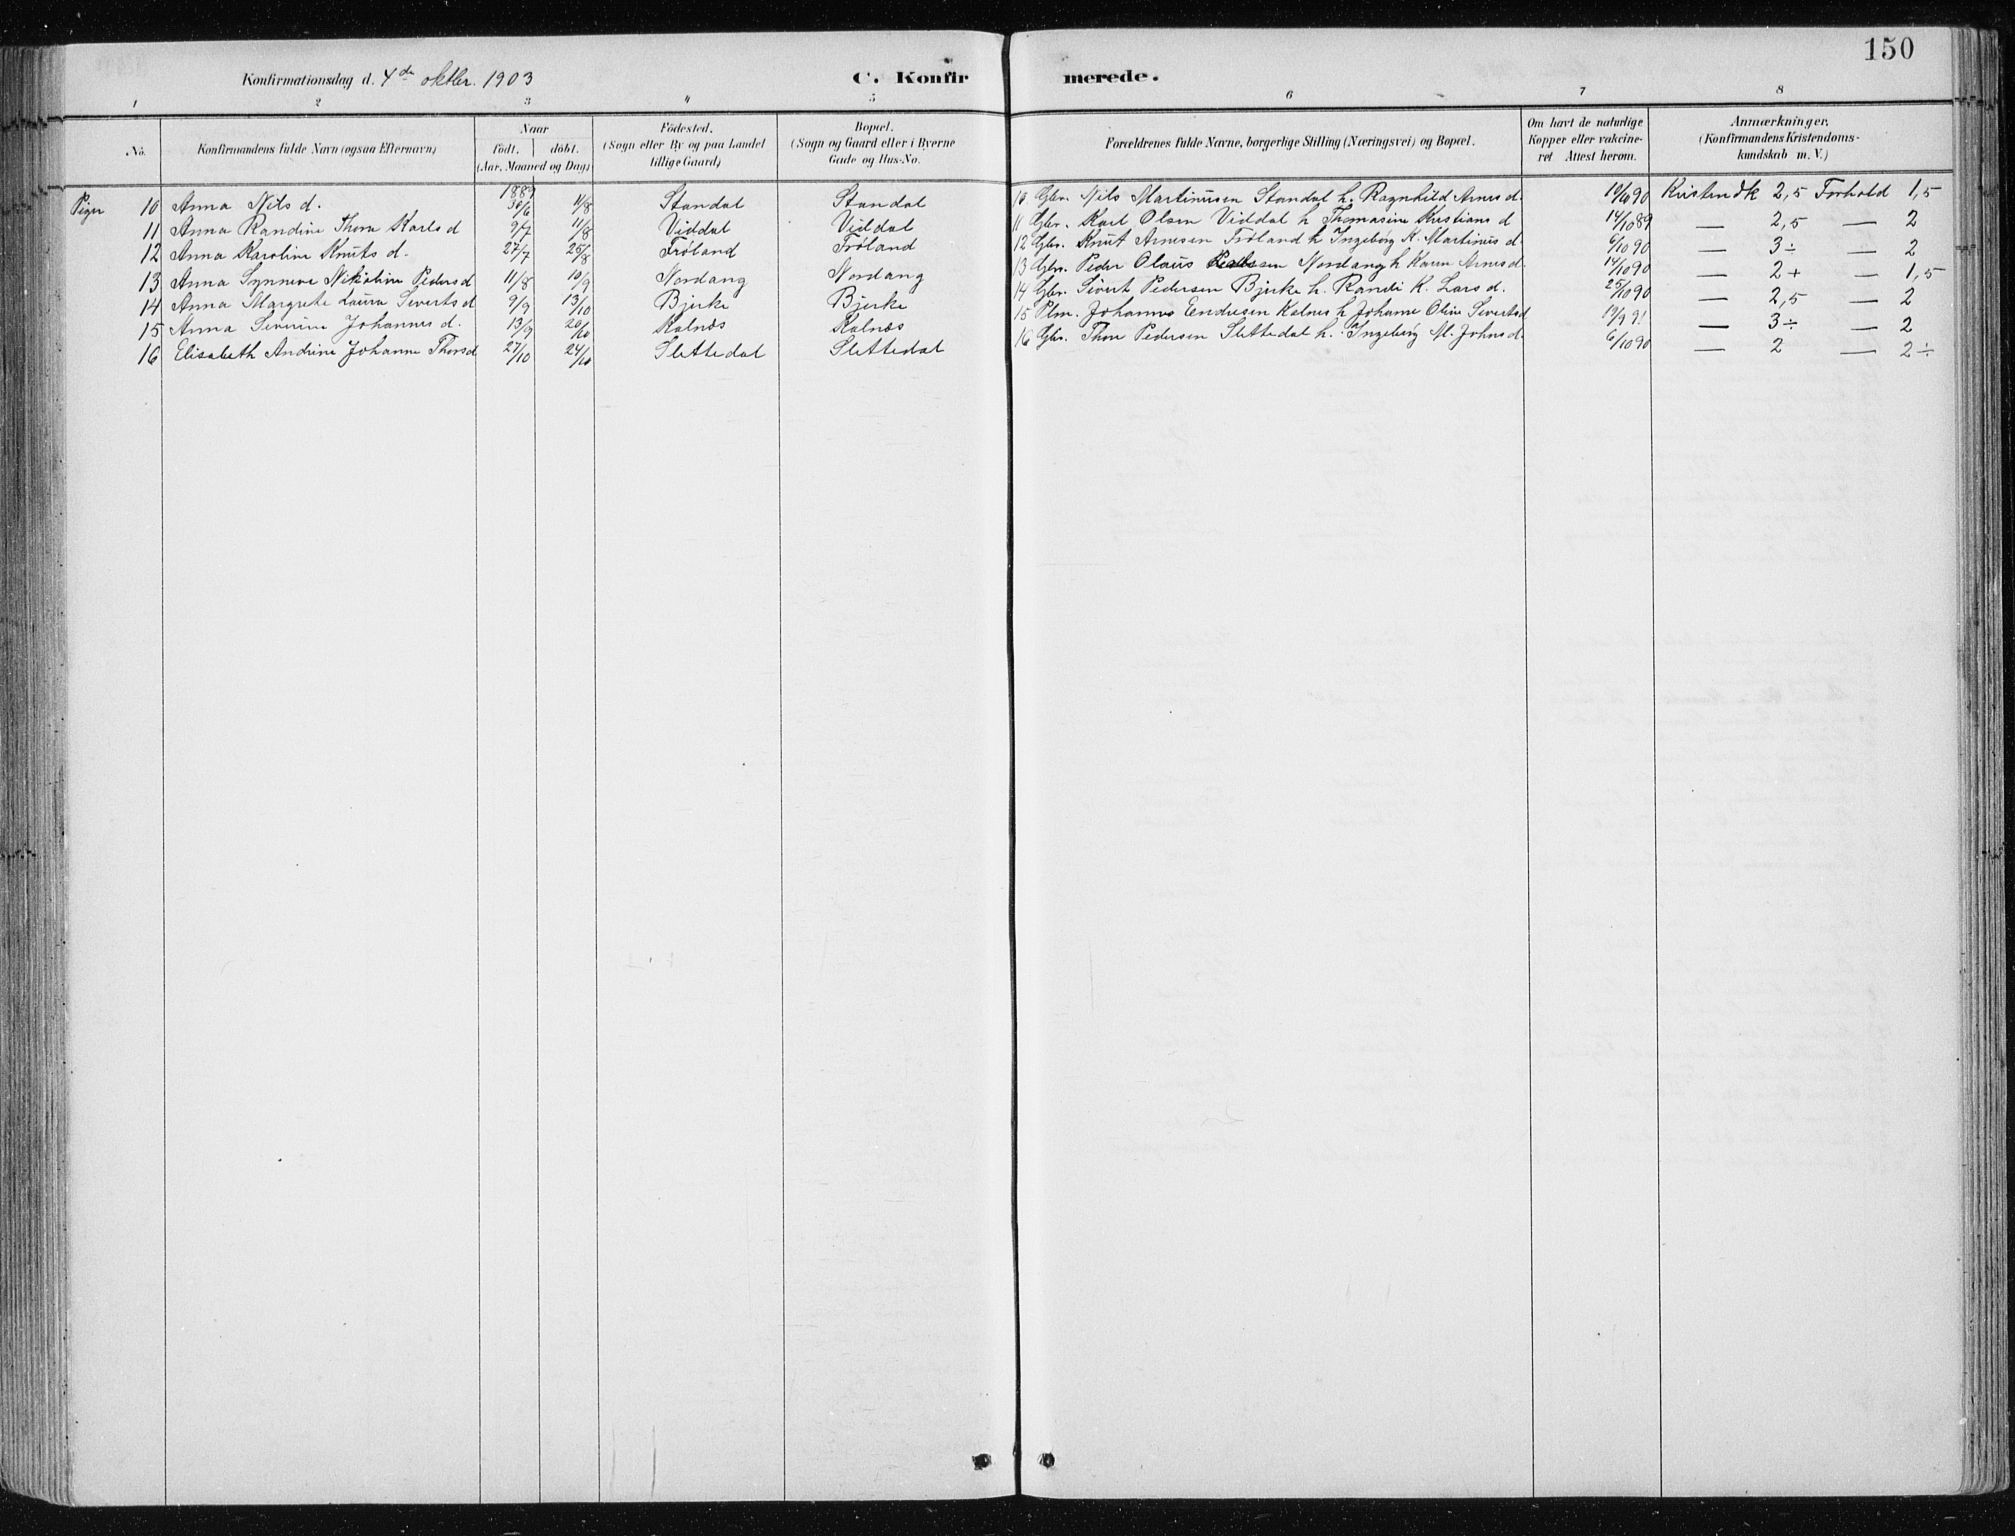 150
Konfirmationsdag d. 4de oktbr. 1903 C. Konfirmerede.
1 2 3 4 5 6 7 8
No. Konfirmandens fulde Navn (ogsaa Efternavn) Naar født. døbt. (Aar, Maaned og Dag) Fødested. (Sogn eller By og paa Landet tillige Gaard) Bopæl. (Sogn og Gaard eller i Byerne Gade og Hus-No. Forældrenes fulde Navne, borgerlige Stilling (Næringsvei) og Bopæl. Om havt de naturlige Kopper eller vakcineret Attest herom. Anmærkninger. (Konfirmandens Kristendomskundskab m. V.)
1889
Piger 10 Anna Nils d. 30/6 11/8 Standal Standal 10 Gbr. Nils Martinusen Standal h. Ragnhild Arnes d. 10/10 90 Kristendk 2,5 Forhold 1,5
11 Anna Randine Thora Karls d 9/7 11/8 Viddal Viddal 11 Gbr. Karl Olsen Viddal h Thomasine Kristians d 14/10 89 — 2,5 — 2
12 Anna Karoline Knuts d. 27/7 25/8 Frøland Frøland 12 Gbr. Knut Arnesen Frøland h Ingeborg K. Martinus d. 6/10 90 — 3÷ — 2
13 Anna Synneve Nikoline Peders d 11/8 10/9 Nordang Nordang 13 Gbr. Peder Olaus Nordang h Karen Arnes d. 14/10 90 — 2+ — 1,5
14 Anna Margrete Laura Siverts d 9/9 13/10 Bjerke Bjerke 14 Gbr. Sivert Pedersen Bjerke h. Randi K. Lars d. 25/10 90 — 2,5 — 2
15 Anna Severine Johannes d. 13/9 20/10 Kalnæs Kalnæs 15 Plm. Johannes Endresen Kalnes h Johanne Oline Sivertsd 19/9 91 — 3÷ — 2
16 Elisabeth Andrine Johanne Thorsd 27/10 24/10 Slettedal Slettedal 16 Gbr. Thor Pedersen Slettedal h. Ingeborg M. Johns d. 6/10 90 — 2 — 2÷